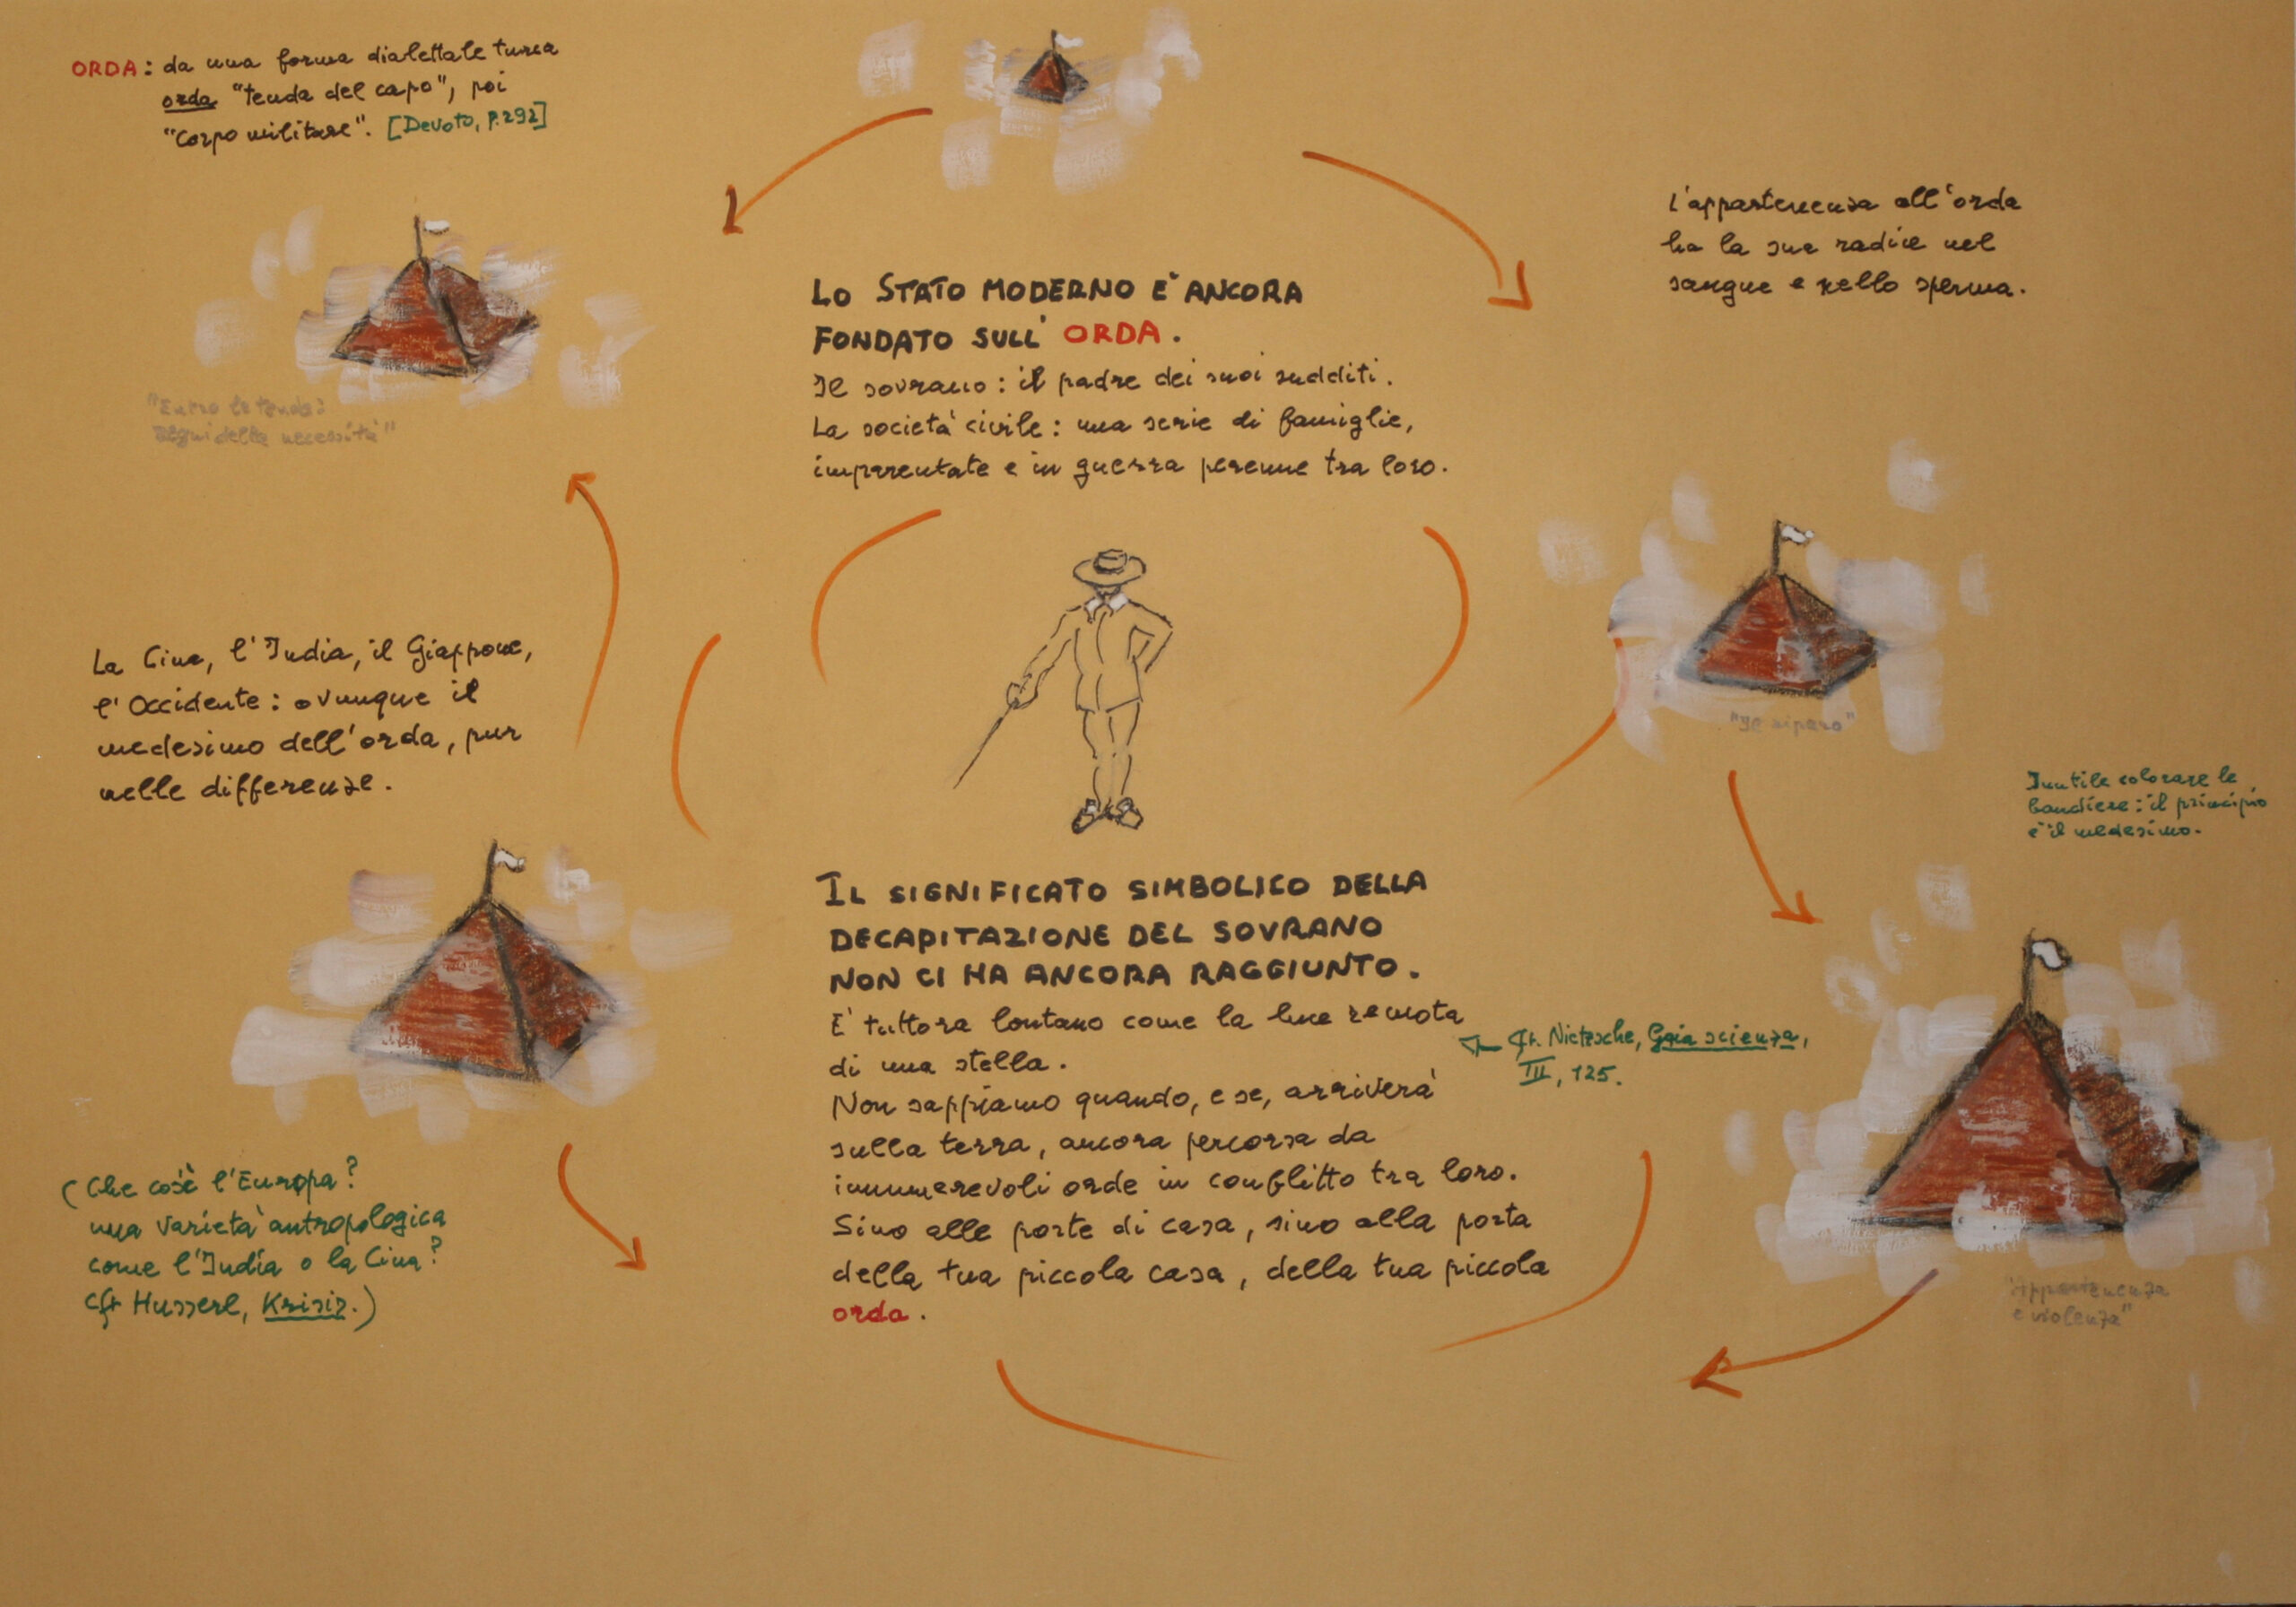 ORDA: da una forma dialettale turca
orda "tenda del capo", poi
"corpo militare". [Devoto, p.292]
L'appartenenza all'orda
ha la sua radice nel
sangue e nello sperma.
LO STATO MODERNO E' ANCORA
FONDATO SULL'ORDA.
Il sovrano: il padre dei suoi sudditi.
La società civile: una serie di famiglie,
imparentate e in guerra perenne tra loro.
"Entro la tenda:
segni della necessità"
La Cina, l'India, il Giappone,
l'Occidente: ovunque il
medesimo dell'orda, pur
nelle differenze.
"Il riparo"
Inutile colorare le
bandiere: il principio
è il medesimo.
IL SIGNIFICATO SIMBOLICO DELLA
DECAPITAZIONE DEL SOVRANO
NON CI HA ANCORA RAGGIUNTO.
E' tuttora lontano come la luce remota
di una stella.
Non sappiamo quando, e se, arriverà
sulla terra, ancora percorsa da
innumerevoli orde in conflitto tra loro.
Sino alle porte di casa, sino alla porta
della tua piccola casa, della tua piccola
orda.
Cfr. Nietzsche, Gaia scienza,
III, 125.
(Che cos'è l'Europa?
una varietà antropologica
come l'India o la Cina?
Cfr Husserl, Krisis.)
"Appartenenza
e violenza"